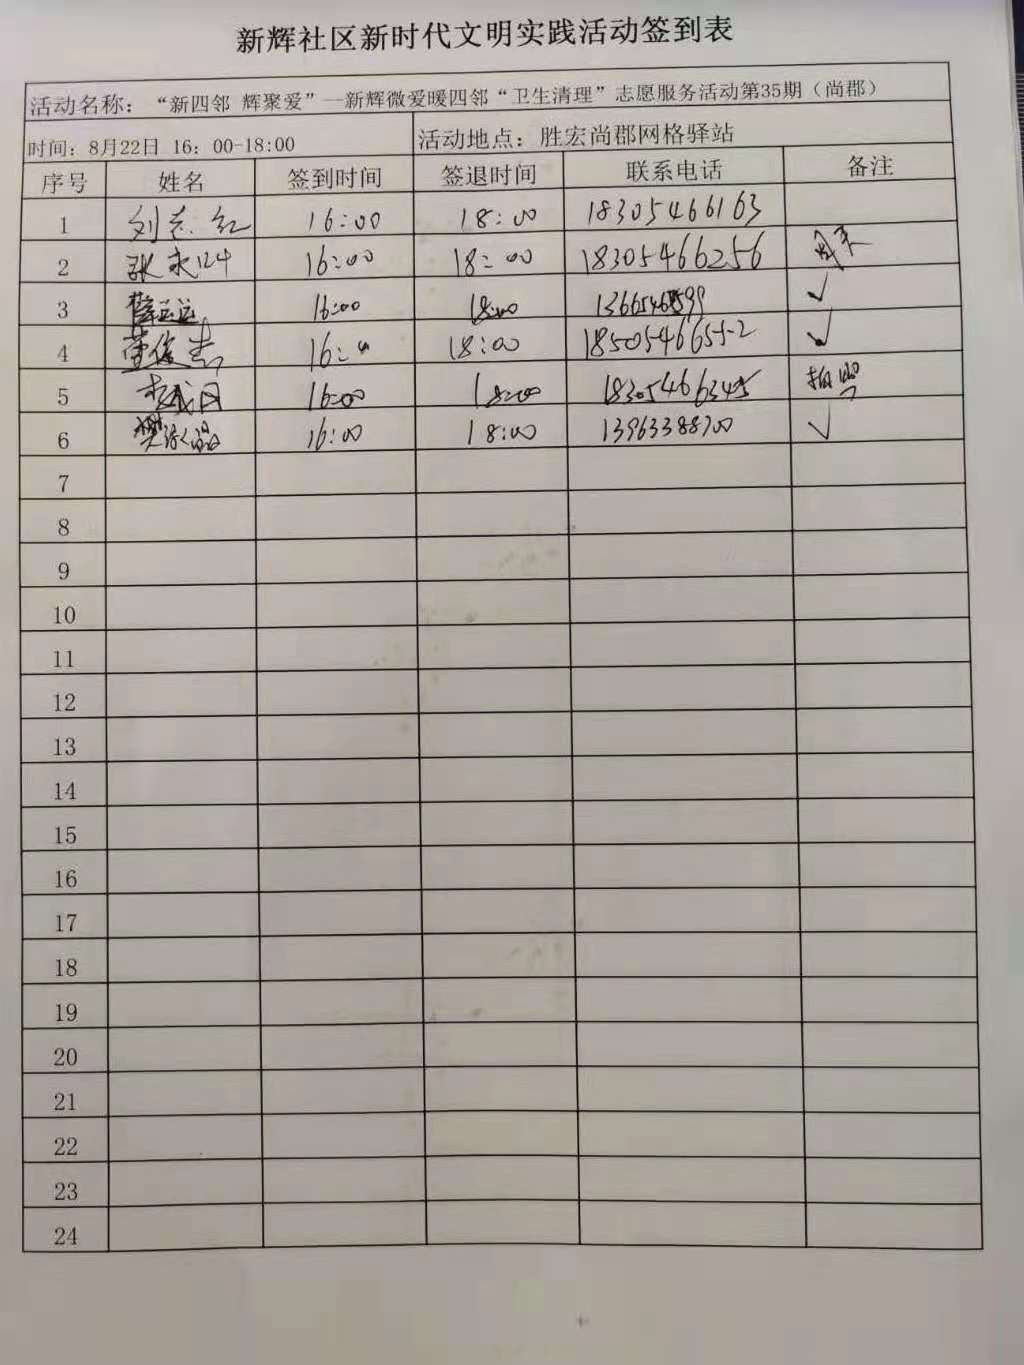 新辉社区新时代文明实践活动签到表
活动名称：“新四邻 辉聚爱”—新辉微爱暖四邻“卫生清理”志愿服务活动第35期（尚郡）
时间：8月22日 16：00-18:00 活动地点：胜宏尚郡网格驿站
序号 姓名 签到时间 签退时间 联系电话 备注
1 刘志红 16:00 18:00 18305466163
2 张永 16:00 18:00 18305466256
3 薛 16:00 18:00 ✓
4 董俊 16: 18:00 ✓
5 16:00 18:00 拍照
6 樊 16:00 18:00 13963388700 ✓
7
8
9
10
11
12
13
14
15
16
17
18
19
20
21
22
23
24